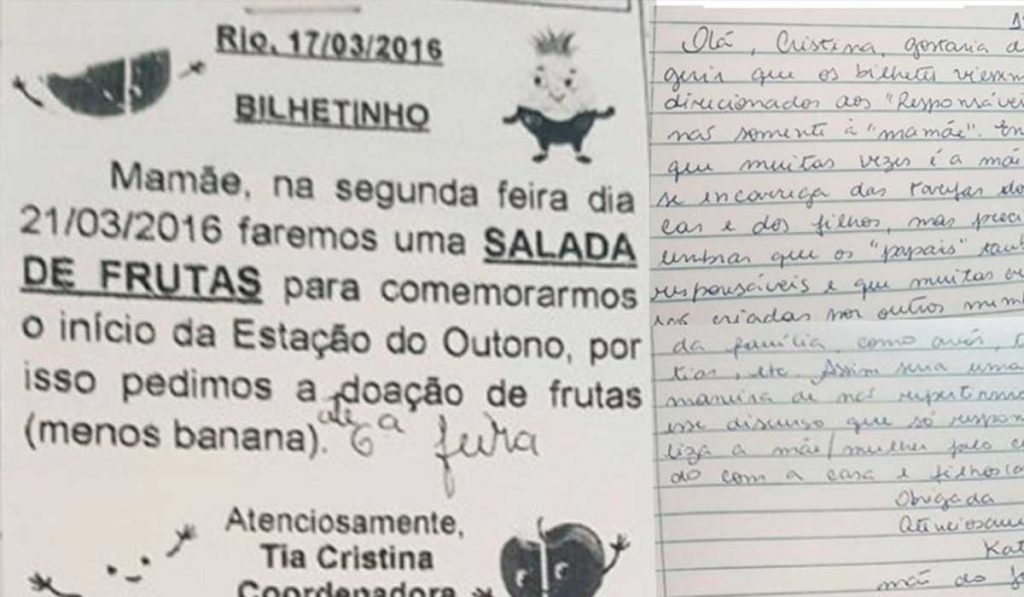 Rio, 17/03/2016
BILHETINHO
Mamãe, na segunda feira dia
21/03/2016 faremos uma SALADA
DE FRUTAS para comemorarmos
o início da Estação do Outono, por
isso pedimos a doação de frutas
(menos banana). até 6ª feira
Atenciosamente,
Tia Cristina
Coordenadora
Olá, Cristina, gostaria d
gerir que os bilhetes viessem
direcionados aos "Responsávei
nas somente à "mamãe". En
que muitas vezes é a mã
se encarrega das tarefas do
lar e dos filhos, mas preci
lembrar que os "papais" tam
responsáveis e que muitas
criadas por outros mem
da família, como avós,
tias, etc. Assim seria uma
maneira de não
esse discurso que só respon
liza a mãe/mulher pelo c
do com a casa e filhos(a
Obrigada
Atenciosam
Kat
mãe do J